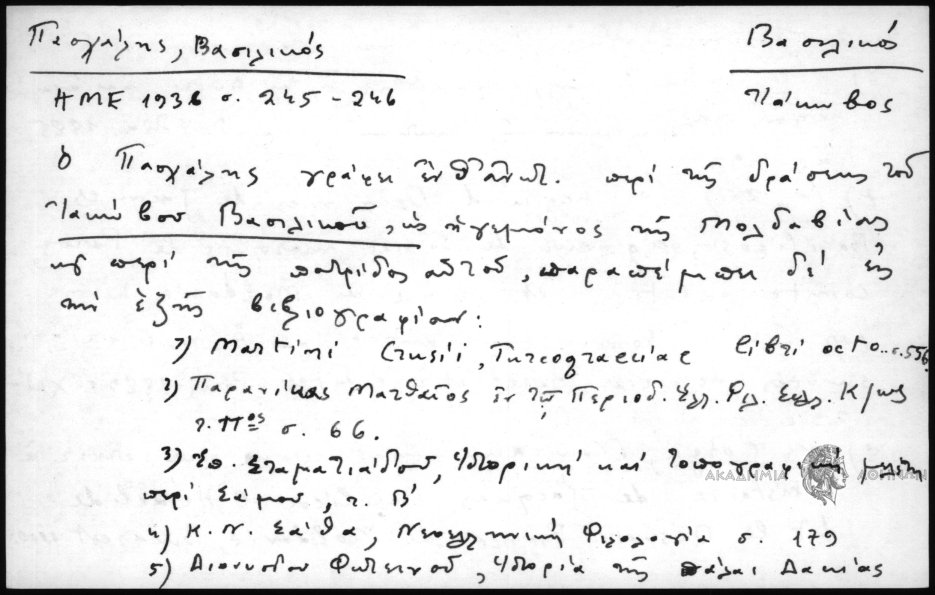 Πασχάλης, Βασιλικός
Βασιλικός
ΗΜΕ 1936 σ. 245-246
Ἰάκωβος
ὁ Πασχάλης γράφει ἐνθ' ἀνωτ. περί τῆς δράσεως τοῦ
Ἰακώβου Βασιλικοῦ, ὡς ἡγεμόνος τῆς Μολδαβίας
κ περί τῆς πατρίδος αὐτοῦ, παραπέμπει δέ εἰς
τήν ἑξῆς βιβλιογραφίαν:
1) Martini Crusii, Turcograeciae libri octo.. σ. 556.
2) Παρανίκας Ματθαῖος ἐν τῷ Περιοδ. Ἑλλ. Φιλ. Συλλ. Κ/πως
τ. ΙΙος σ. 66.
3) Ἐπ. Σταματιάδου, Ἱστορική καί τοπογραφική μελέτη
περί Σάμου, τ. Β'
4) Κ. Ν. Σάθα, Νεοελληνική Φιλολογία σ. 179
5) Διονυσίου Φωτεινοῦ, Ἱστορία τῆς πάλαι Δακίας
ΑΚΑΔΗΜΙΑ ΑΘΗΝΩΝ